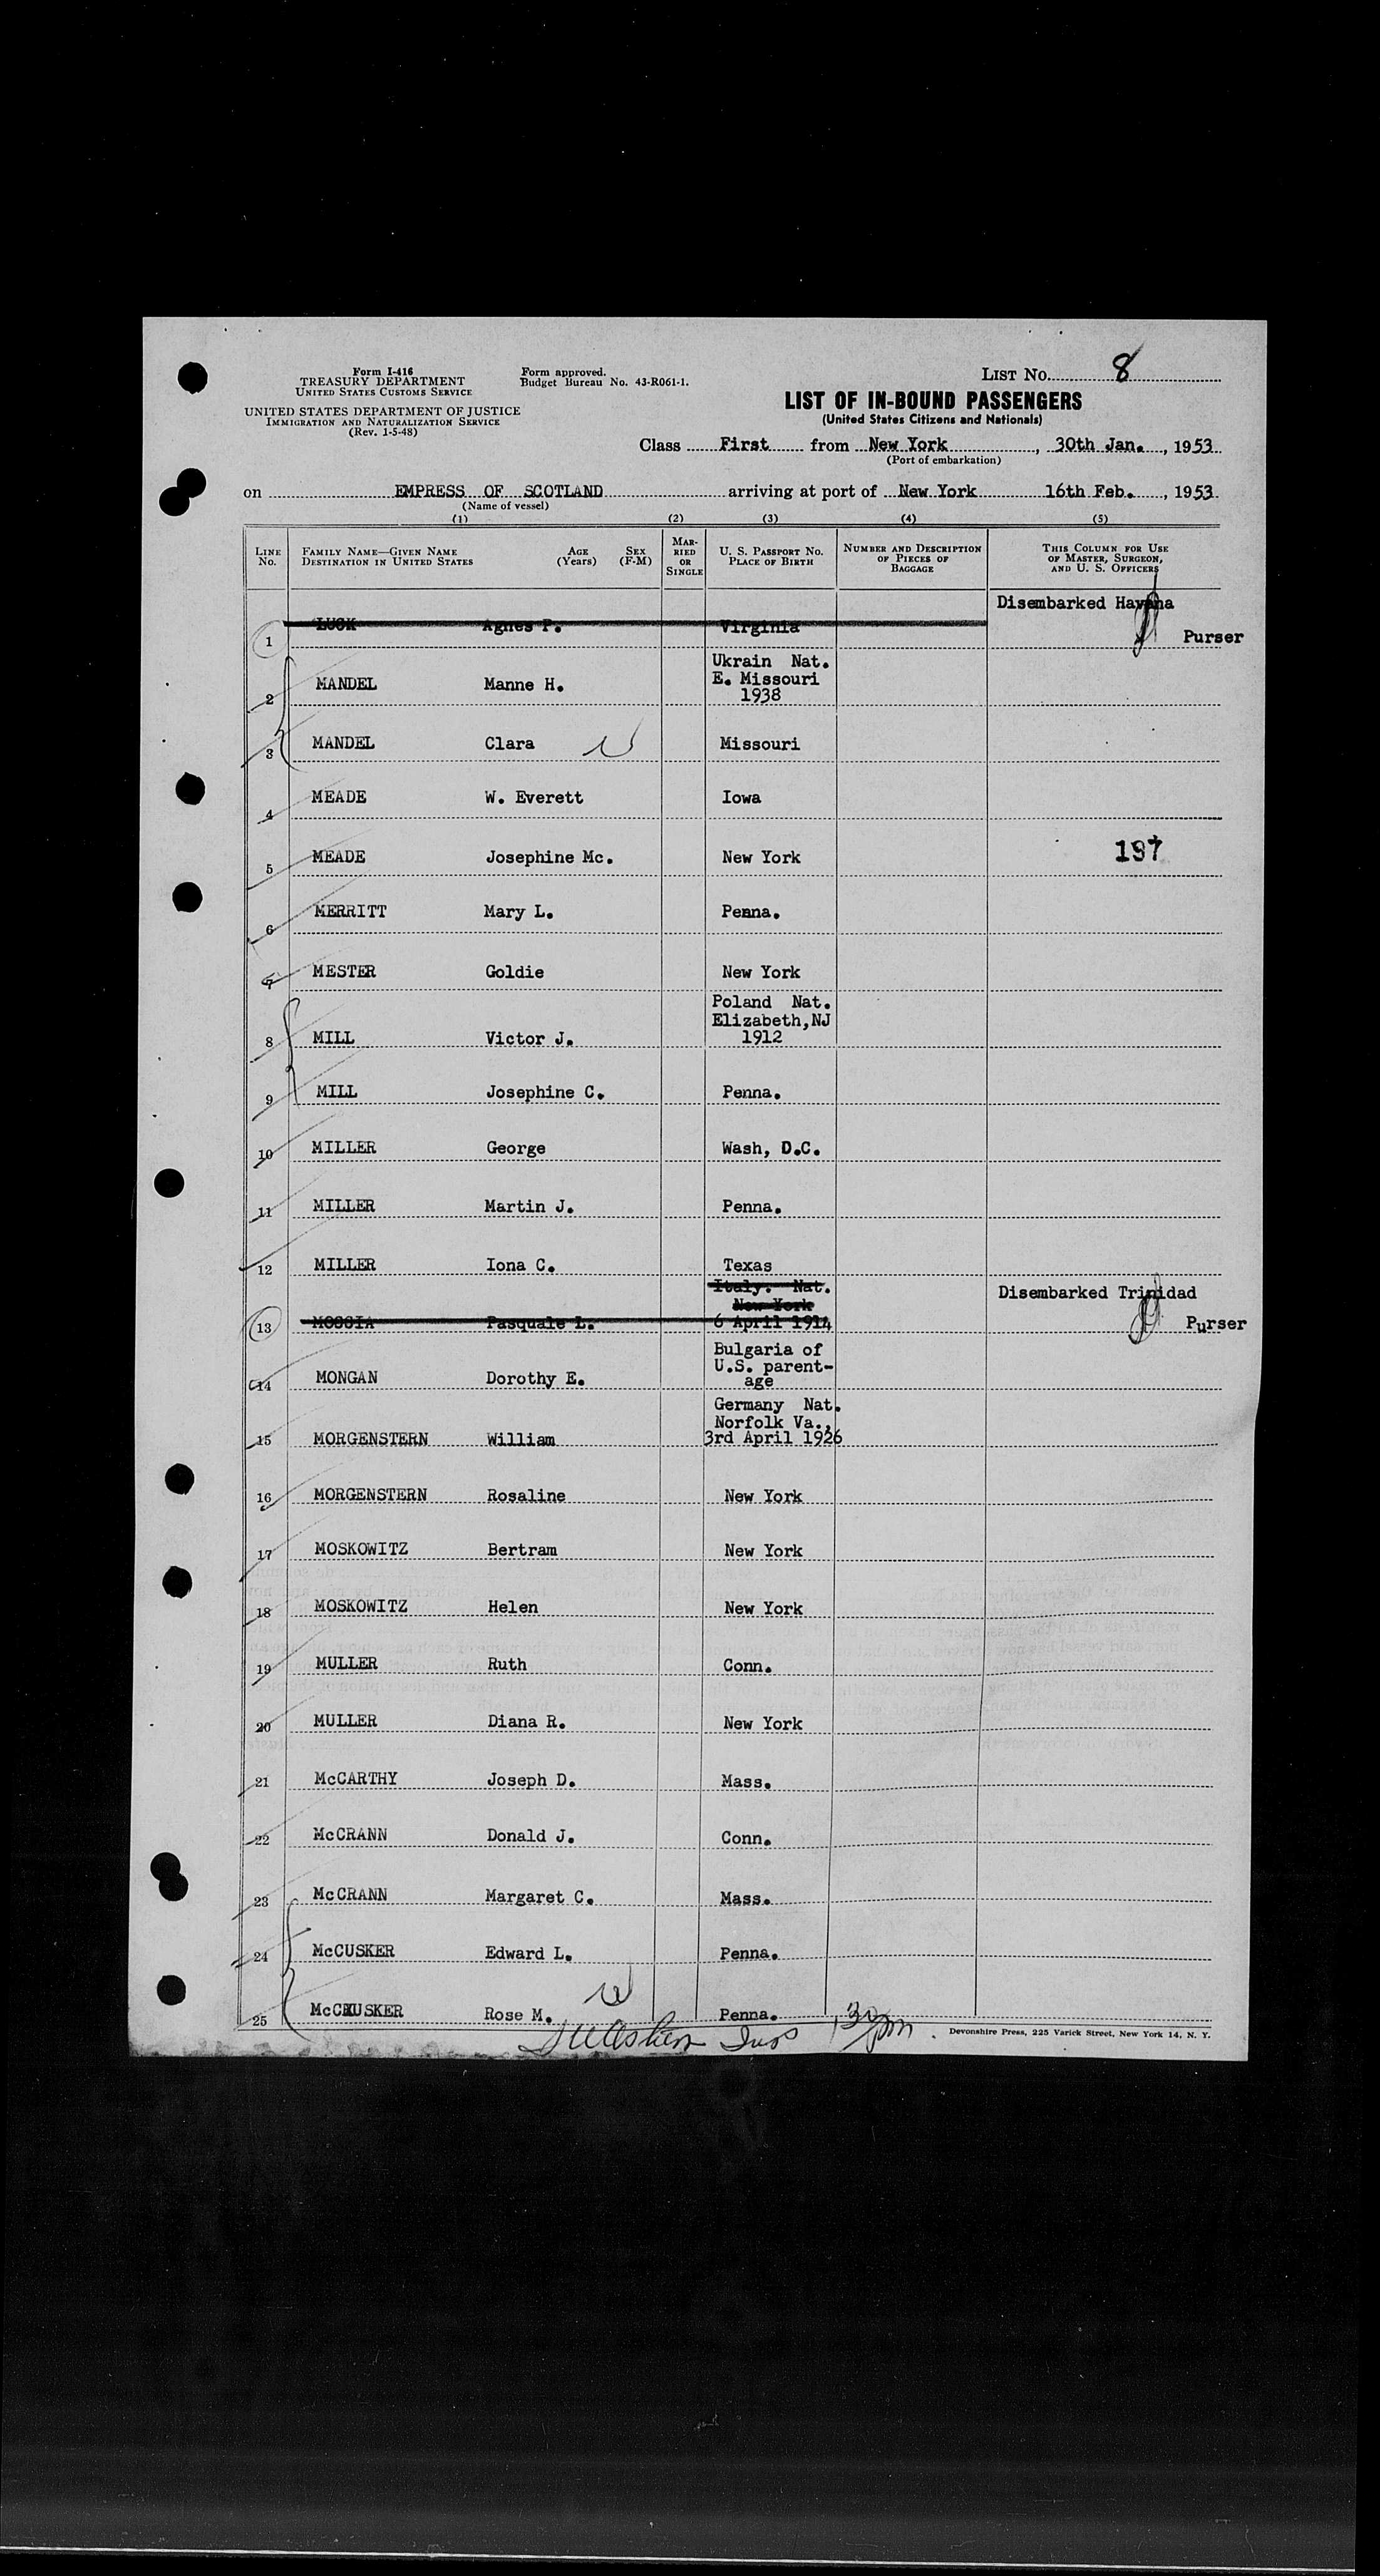 Form I-416
TREASURY DEPARTMENT
UNITED STATES CUSTOMS SERVICE
UNITED STATES DEPARTMENT OF JUSTICE
IMMIGRATION AND NATURALIZATION SERVICE
(Rev. 1-5-48)
Form approved.
Budget Bureau No. 43-R061-1.
LIST No. 8
LIST OF IN-BOUND PASSENGERS
(United States Citizens and Nationals)
Class First from New York, 30th Jan., 1953
(Port of embarkation)
on EMPRESS OF SCOTLAND arriving at port of New York 16th Feb., 1953
(Name of vessel)
(1) (2) (3) (4) (5)
LINE No.
FAMILY NAME—GIVEN NAME DESTINATION IN UNITED STATES
AGE (Years)
SEX (F-M)
MARRIED OR SINGLE
U. S. PASSPORT NO. PLACE OF BIRTH
NUMBER AND DESCRIPTION OF PIECES OF BAGGAGE
THIS COLUMN FOR USE OF MASTER, SURGEON, AND U. S. OFFICERS
1 LUCK Agnes P. Virginia Disembarked Havana Purser
2 MANDEL Manne H. Ukrain Nat. E. Missouri 1938
3 MANDEL Clara Missouri
4 MEADE W. Everett Iowa
5 MEADE Josephine Mc. New York 197
6 MERRITT Mary L. Penna.
7 MESTER Goldie New York
8 MILL Victor J. Poland Nat. Elizabeth,NJ 1912
9 MILL Josephine C. Penna.
10 MILLER George Wash, D.C.
11 MILLER Martin J. Penna.
12 MILLER Iona C. Texas
13 MOSSIA Pasquale L. Italy. Nat. New York 6 April 1914 Disembarked Trinidad Purser
14 MONGAN Dorothy E. Bulgaria of U.S. parent-age
15 MORGENSTERN William Germany Nat. Norfolk Va., 3rd April 1926
16 MORGENSTERN Rosaline New York
17 MOSKOWITZ Bertram New York
18 MOSKOWITZ Helen New York
19 MULLER Ruth Conn.
20 MULLER Diana R. New York
21 McCARTHY Joseph D. Mass.
22 McCRANN Donald J. Conn.
23 McCRANN Margaret C. Mass.
24 McCUSKER Edward L. Penna.
25 McCUSKER Rose M. Penna.
Devonshire Press, 225 Varick Street, New York 14, N. Y.